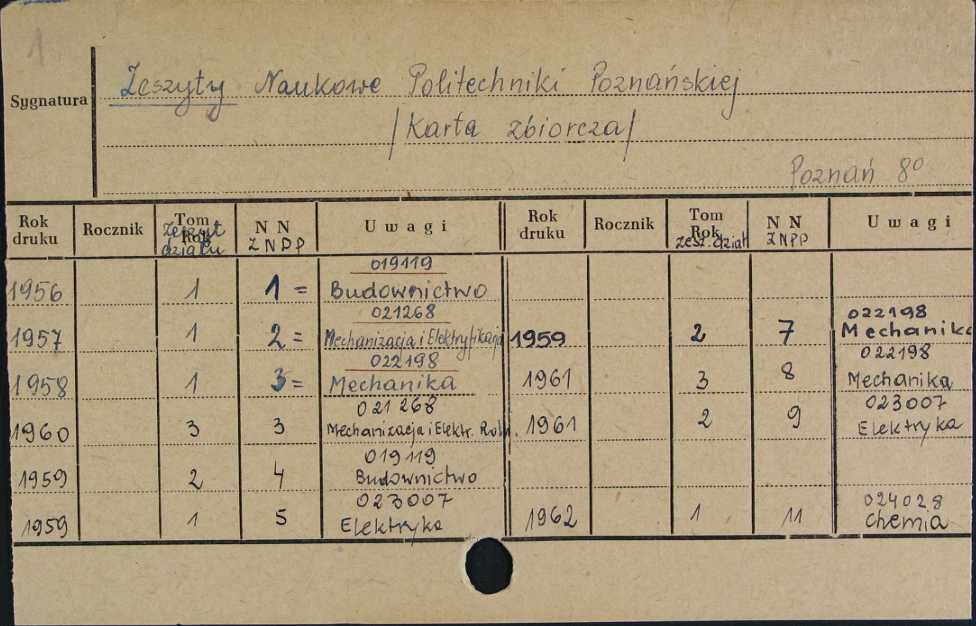 1
Sygnatura
Zeszyty Naukowe Politechniki Poznańskiej
/Karta zbiorcza/
Poznań 8⁰
Rok druku Rocznik Tom Rok zeszyt działu N N Z N P P Uwagi Rok druku Rocznik Tom Rok zesz. dział N N Z N P P Uwagi
019119
1956 1 1 = Budownictwo
021268 022198
1957 1 2 = Mechanizacja i Elektryfikacja 1959 2 7 Mechanika
022198 022198
1958 1 3 = Mechanika 1961 3 8 Mechanika
021268 023007
1960 3 3 Mechanizacja i Elektr. Roln. 1961 2 9 Elektryka
019119
1959 2 4 Budownictwo
023007 024028
1959 1 5 Elektryka 1962 1 11 Chemia